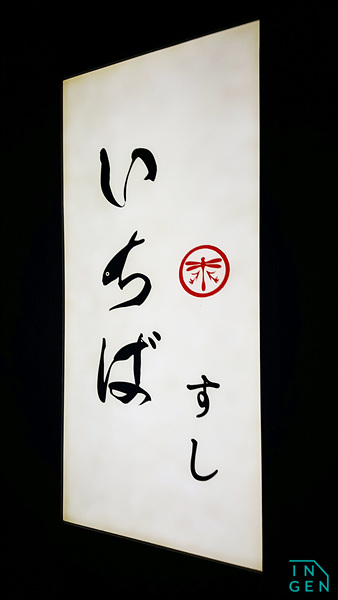 いちば
すし
IN
GEN